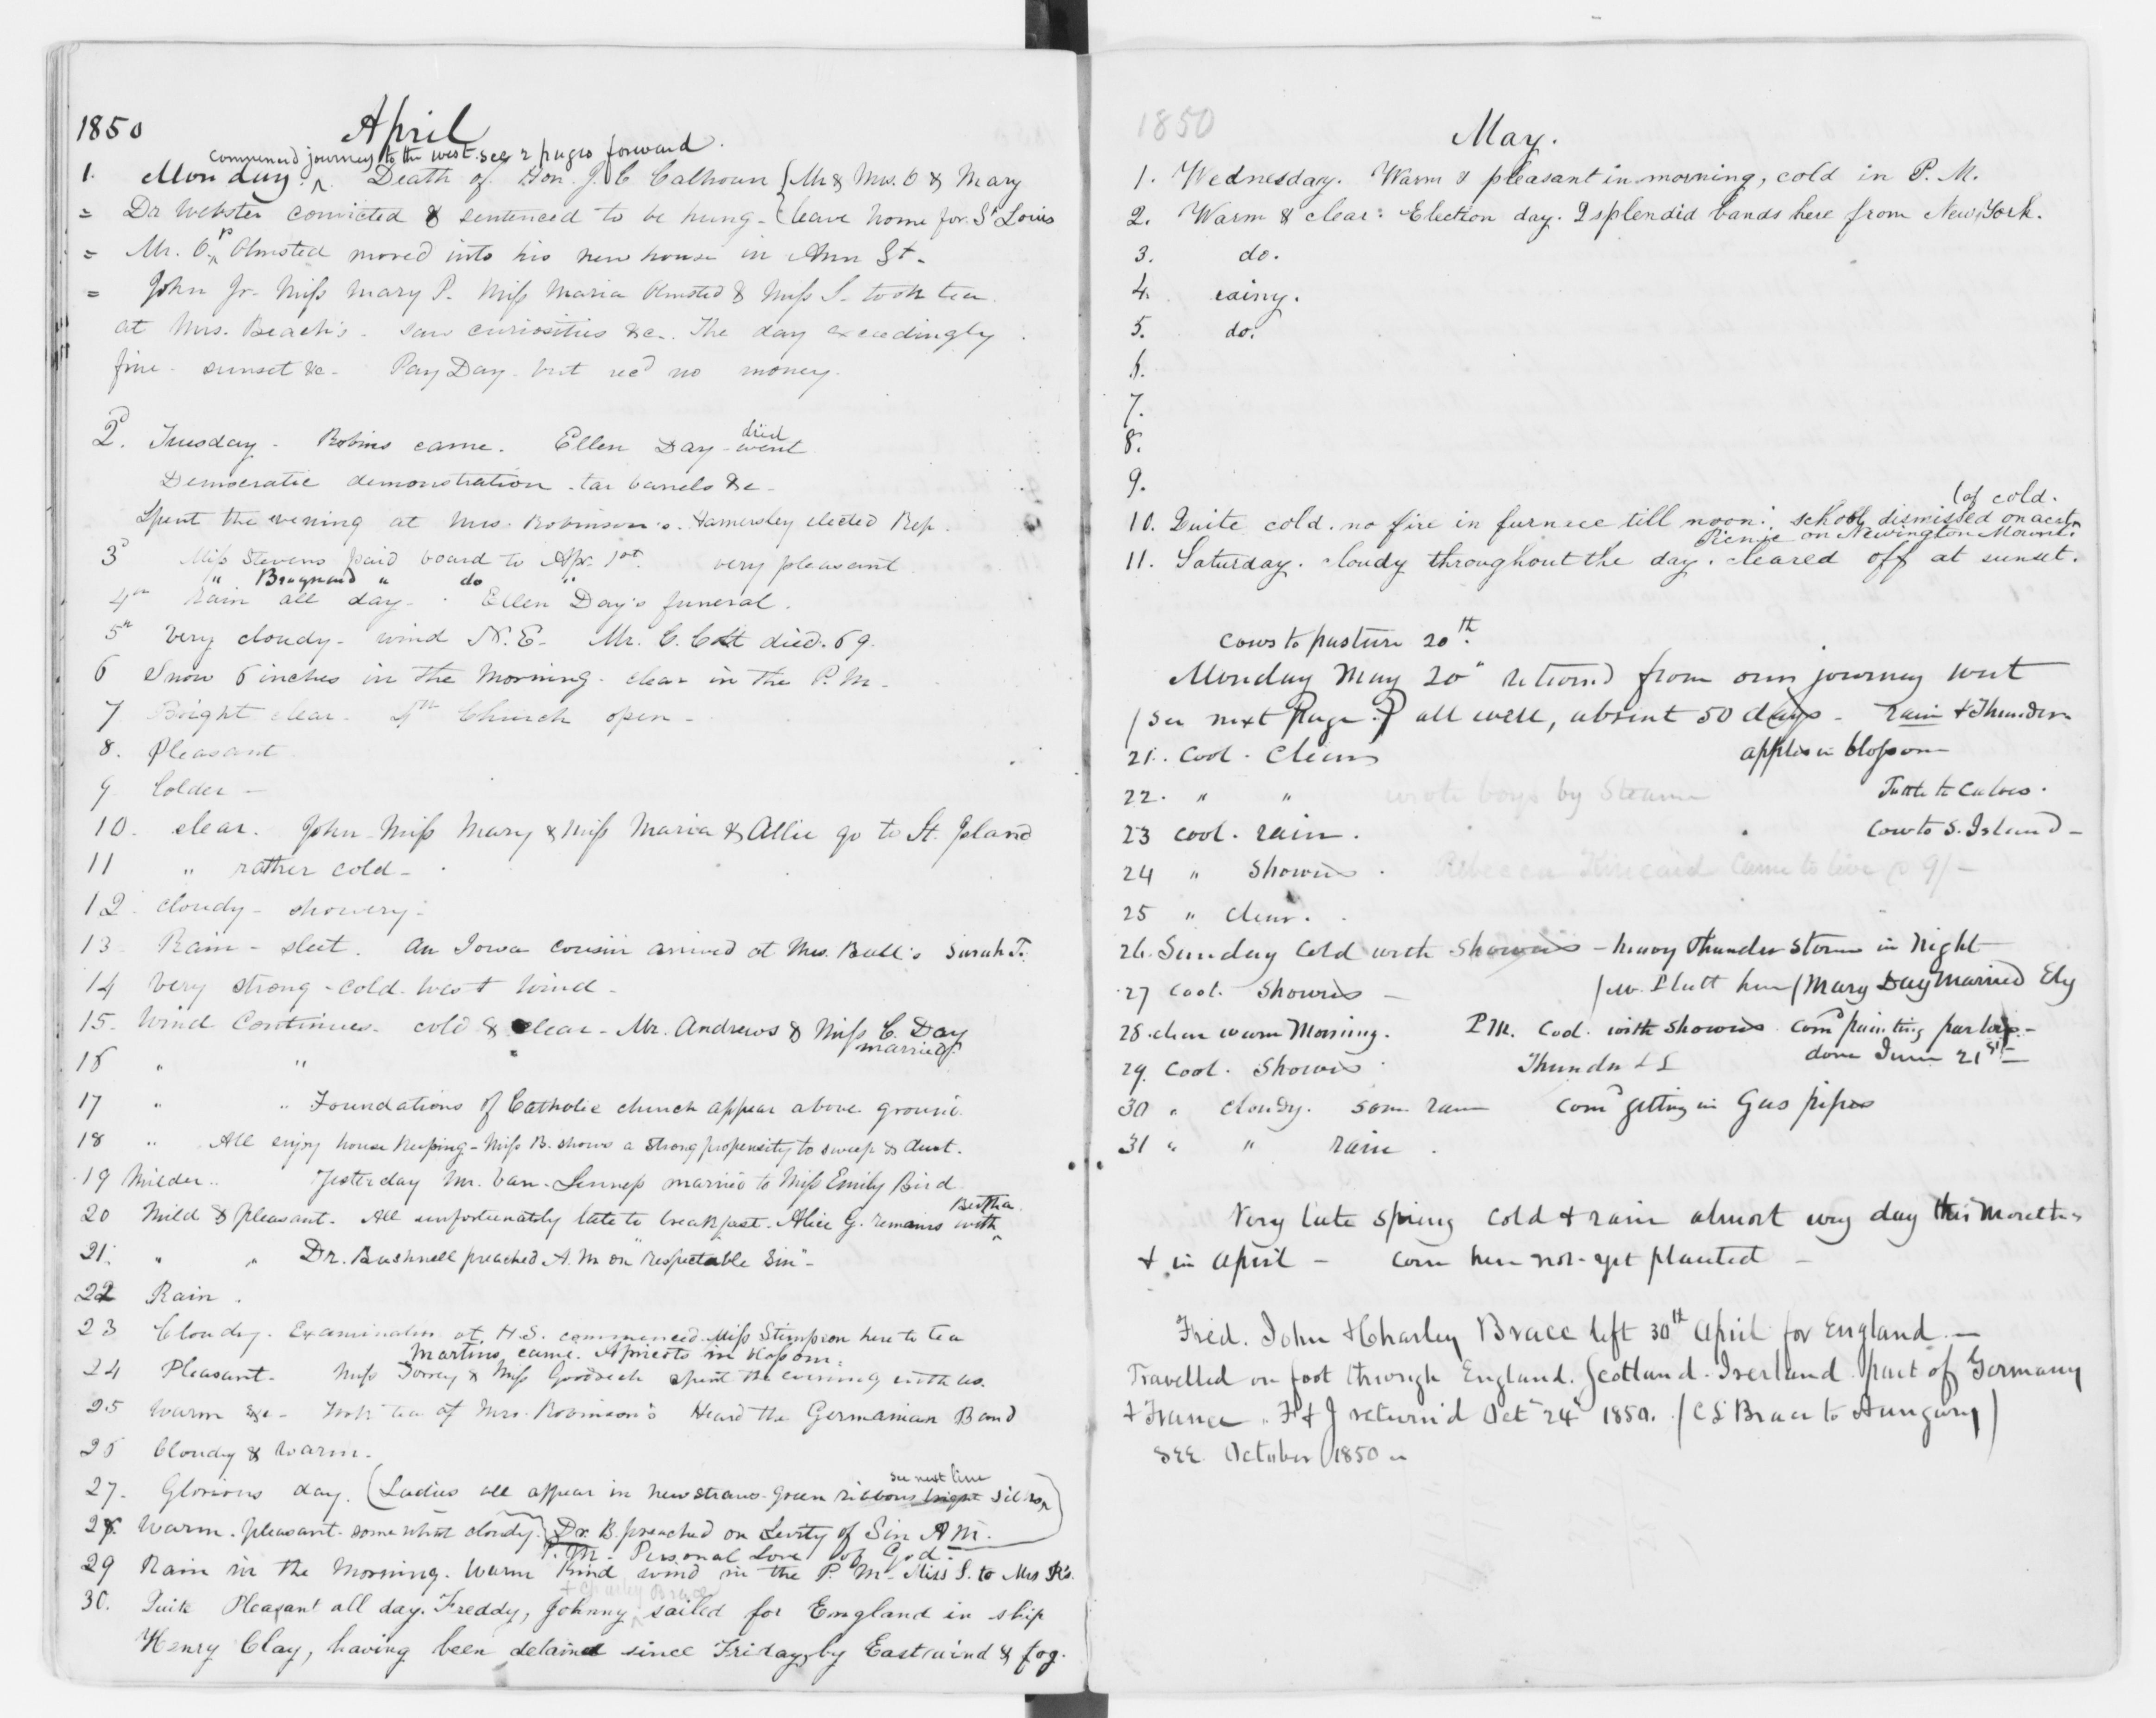 1850 April
commenced journey to the west. see 2 pages forward.
1. Monday. ^ Death of Hon. J. C Calhoun { Mr & Mrs. O & Mary
= Dr Webster convicted & sentenced to be hung - { leave home for St Louis
= Mr. O. Olmsted moved into his new house in Ann St.
= John Jr. Miss Mary P. Miss Maria Olmsted & Miss S. took tea
at Mrs. Beach's. saw curiosities &c. The day exceedingly
fine. sunset &c. Pay Day. but recd no money.
2d. Tuesday. Robins came. Ellen Day went died
Democratic demonstration. tar barrels &c.
Spent the evening at Mrs. Robinson's. Hamersley elected Rep.
3d Miss Stevens paid board to Apr. 1st. very pleasant
" Braynard " do "
4th Rain all day. Ellen Day's funeral.
5th Very cloudy. wind N.E. Mr. C. Colt died. 69.
6 Snow 6 inches in the Morning. clear in the P.M.
7 Bright clear. 4th Church open.
8. Pleasant
9 Colder -
10. clear. John Miss Mary & Miss Maria & Allie go to St. Island
11 " rather cold -
12 cloudy - showery.
13 Rain - sleet. An Iowa cousin arrived at Mrs. Bull's Sarah T.
14 Very strong - cold West Wind -
15. Wind Continues. cold & clear. Mr. Andrews & Miss C. Day
married.
16 " "
17 " " Foundations of Catholic church appear above ground.
18 " All enjoy house keeping - Miss B. shows a strong propensity to sweep & dust.
19 Milder. Yesterday Mr. Van-Lenness married to Miss Emily Bird
20 Mild & pleasant. All unfortunately late to breakfast. Alice G. remains with ^ Bertha.
21. " " Dr. Bushnell preached A.M on "respectable Sin" -
22 Rain.
23 Cloudy. Examination at H.S. commenced. Miss Stimpson here to tea
Martins came. Apricots in blossom.
24 Pleasant. Miss Torrey & Miss Goodrich spent the evening with us.
25 Warm &c - Took tea at Mrs. Robinson's Heard the Germanian Band
26 Cloudy & Warm.
27. Glorious day. (Ladies all appear in new straws - green ribbons bright silks ^ see next line
28. Warm. pleasant. somewhat cloudy. } Dr. B. preached on Levity of Sin A M.
P.M. Personal Love of God.
29 Rain in the Morning. Warm kind wind in the P. M. Miss S. to Mrs R's.
+ Charley Brace
30. Quite Pleasant all day. Freddy, Johnny ^ sailed for England in ship
Henry Clay, having been detained since Friday, by East wind & fog.
1850 May.
1. Wednesday. Warm & pleasant in morning, cold in P. M.
2. Warm & clear: Election day. 2 splendid bands here from New York.
3. do.
4. rainy.
5. do.
6.
7.
8.
9.
10. Quite cold. no fire in furnace till noon: school dismissed on acct (of cold.
Picnic on Newington Mount.
11. Saturday. cloudy throughout the day. cleared off at sunset.
Cows to pasture 20th.
Monday May 20" returned from our journey west
(see next page.) all well, absent 50 days - rain & Thunder
21. Cool. Clear apples in blossom
22. " " wrote boys by Steamer
23 Cool. rain. Cow to S. Island -
24 " Showers. Rebecca Kincaid came to live @ 9/-
25 " Clear.
26. Sunday Cold with Showers - heavy Thunder Storm in Night
27 Cool. Showers - / Mary Day Married Ely
28. clear warm Morning. P.M. Cool. with showers comd painting parlors -
done June 21st -
29. Cool. Showers Thunder & L
30 " Cloudy. some rain comd getting in Gas pipes
31 " " rain.
Very late spring cold & rain almost every day this month
& in April - corn here not yet planted -
Fred. John & Charley Brace left 30th April for England. -
Travelled on foot through England. Scotland. Irerland part of Germany
& France. F & J return'd Oct 24" 1850. (C L Brace to Hungary)
SEE October 1850